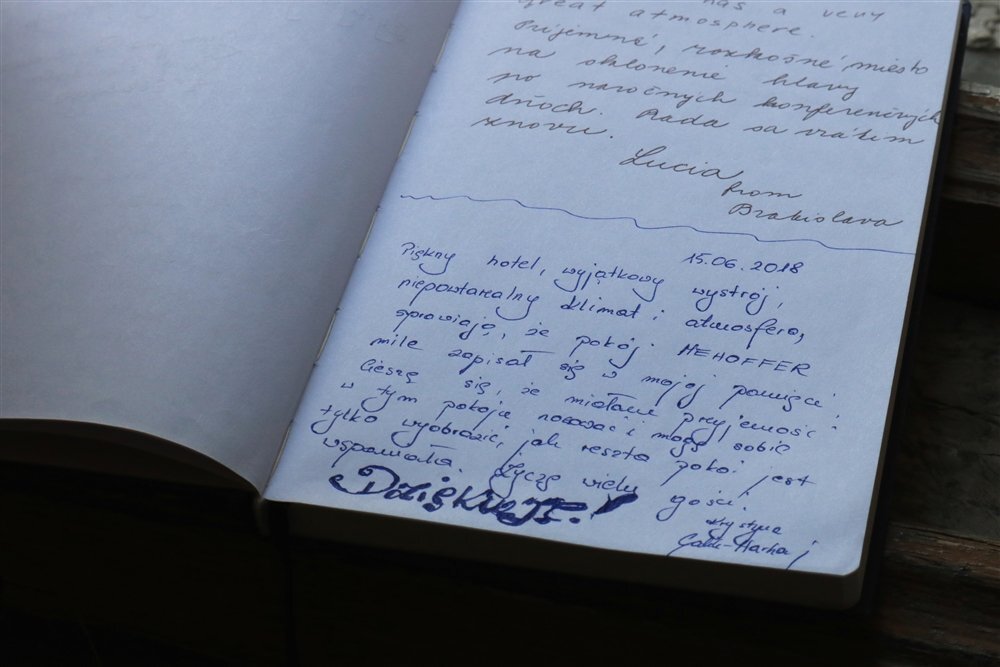 has a very
great atmosphere.
Príjemné, rozkošné miesto
na sklonenie hlavy
po náročných konferenčných
dňoch. Rada sa vrátim
znovu.
Lucia
from
Bratislava
15.06.2018
Piękny hotel, wyjątkowy wystrój,
niepowtarzalny klimat i atmosfera,
sprawiają, że pokój MEHOFFER
mile zapisał się w mojej pamięci.
Cieszę się, że miałam przyjemność
w tym pokoju nocować i mogę sobie
tylko wyobrazić, jak reszta pokoi jest
wspaniała. Życzę wielu gości.
Dziękuję!
Krystyna